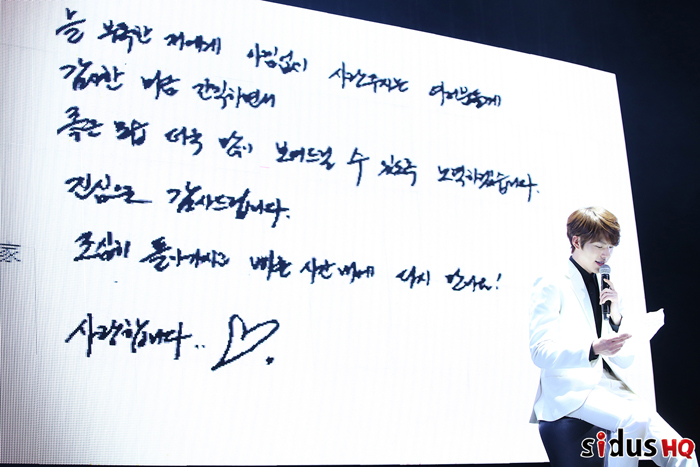 늘 부족한 저에게 아낌없이 사랑주시는 여러분들께
감사한 마음 간직하면서
좋은 모습 더욱 많이 보여드릴 수 있도록 노력하겠습니다.
진심으로 감사드립니다.
조심히 돌아가시고 빠른 시간 내에 다시 만나요!
사랑합니다..
sidus HQ